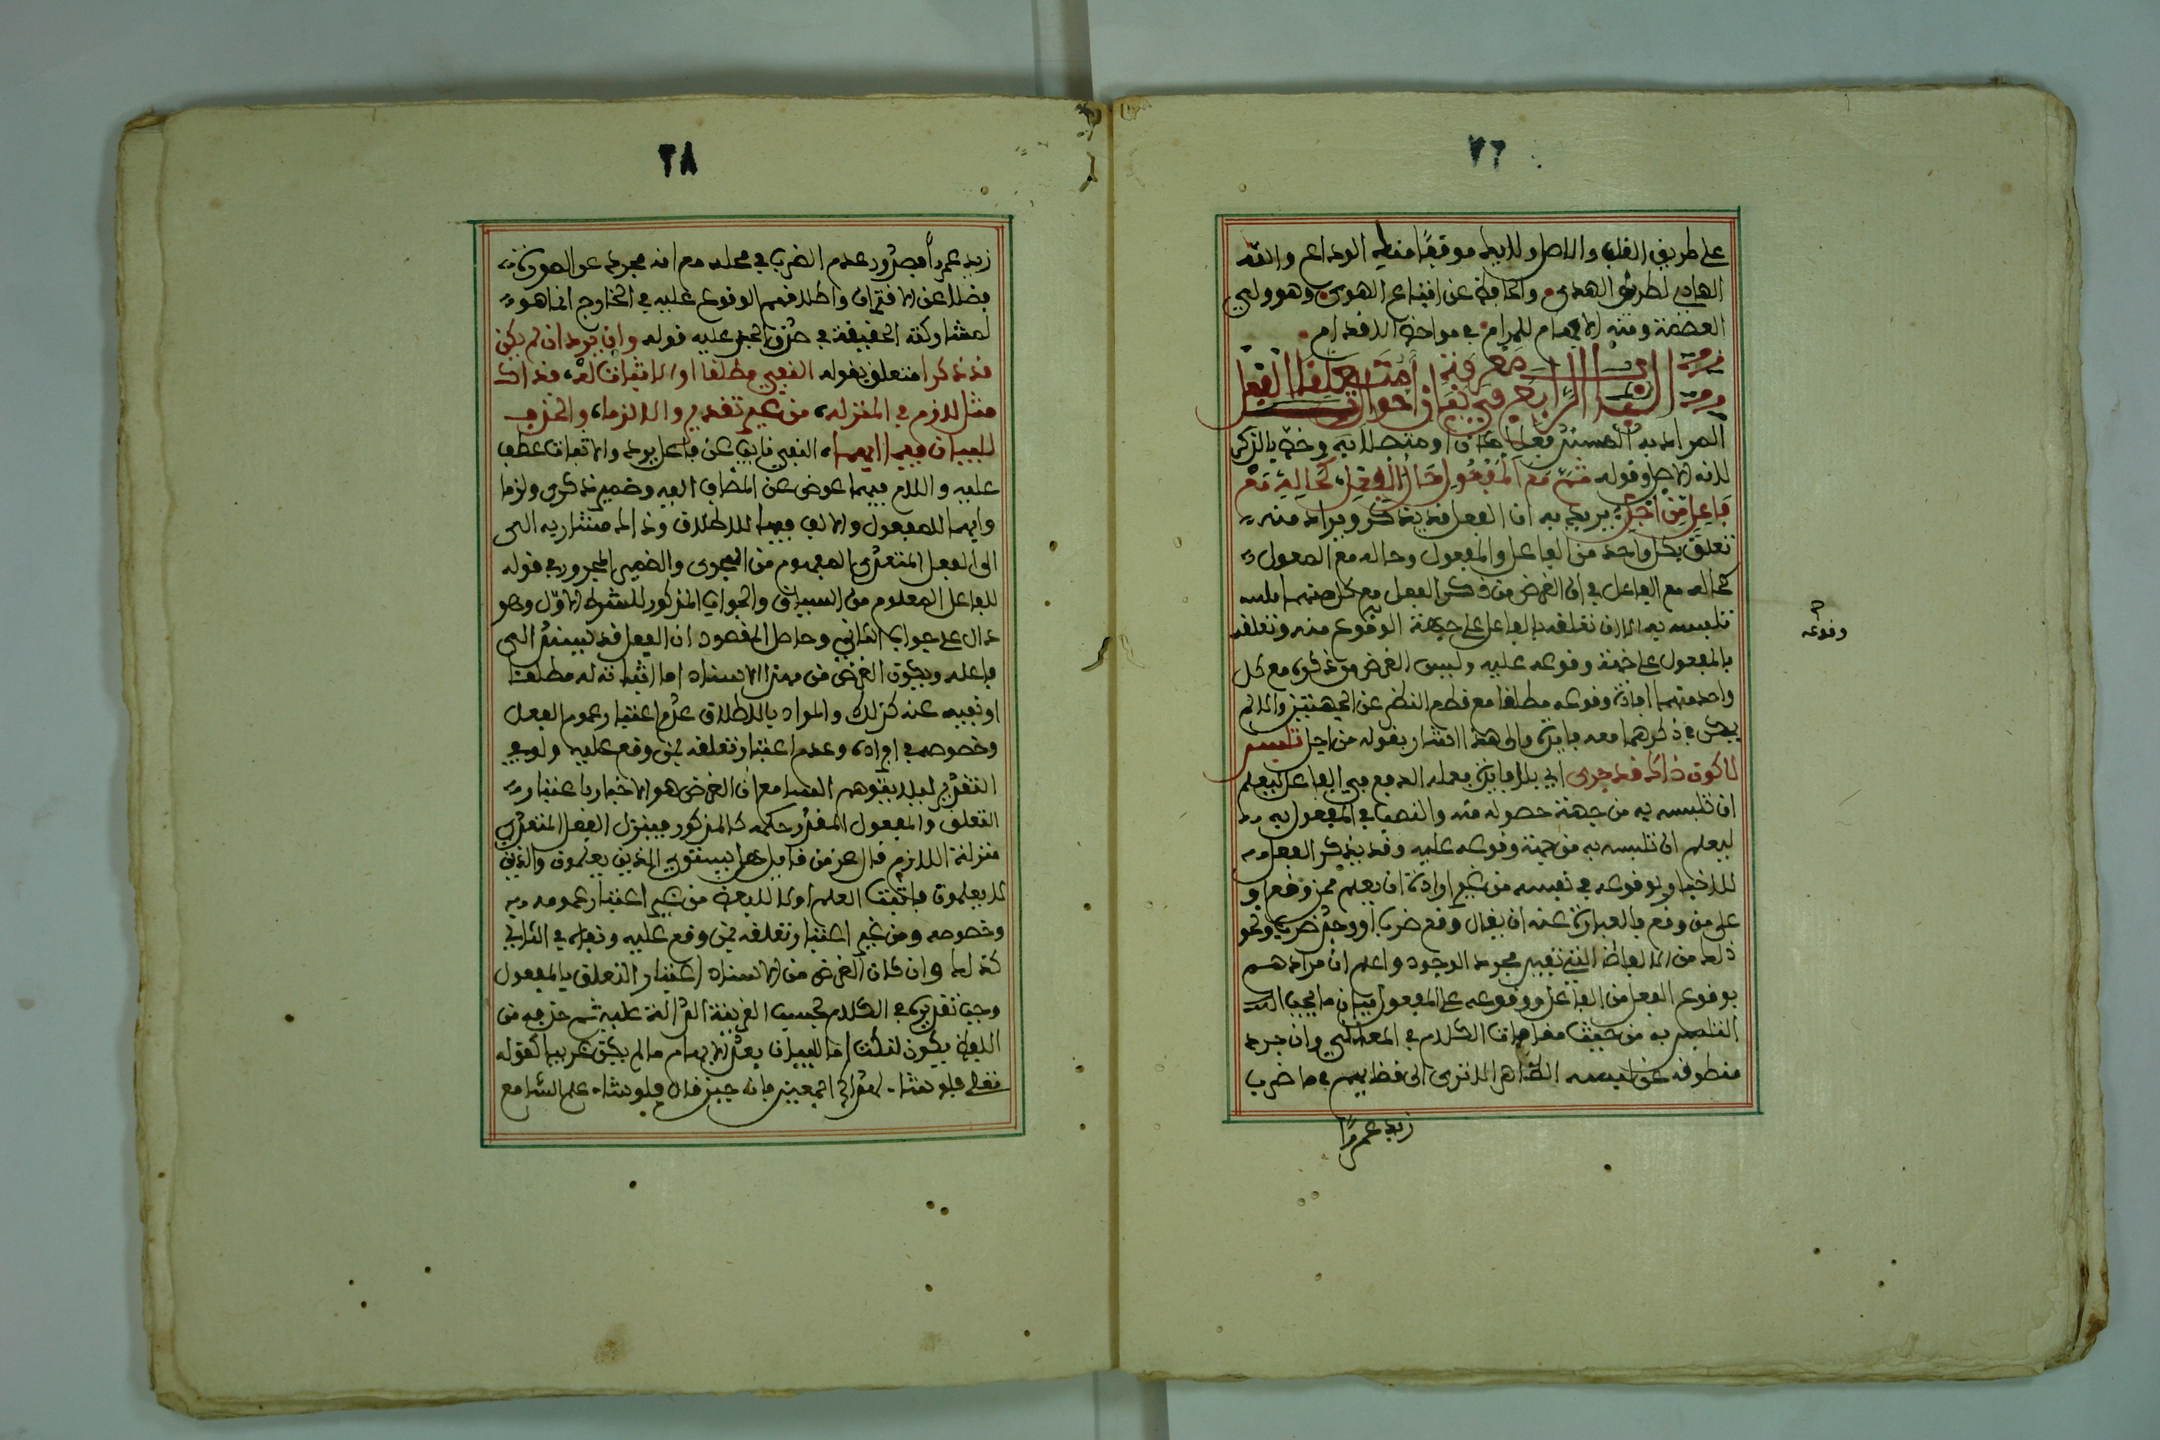 ٧٦
على طريق القلب والاصل ولا بد موقعا
الهادي لطريق الهدى والحافظ عن اتباع الهوى وهو ولي
العصمة ومنه الالهام للمرام في مواخر الاقدام
الفن الرابع في بعض احوال متعلقات الفعل
المراد به المسند فعلا كان او متصلا به وخصه بالذكر
لانه الاصل وقوله ثم مع المفعول حال الفعل كحاله مع
فاعل من اجل يريد به ان الفعل قد يذكر ويراد منه
تعلق بكل واحد من الفاعل والمفعول وحاله مع المفعول
كحاله مع الفاعل في ان الغرض من ذكر الفعل مع كل منهما افادة
تلبسه به الا ان تعلقه بالفاعل على جهة الوقوع منه وتعلقه
بالمفعول على جهة وقوعه عليه وليس الغرض من ذكره مع كل
واحد منهما افادة وقوعه مطلقا مع قطع النظر عن الجهتين والا لم
يكن في ذكرهما معه فائدة والى هذا اشار بقوله من اجل تلبس
لا كون ذاك قد جرى اي بلا فائدة فعمله الرفع في الفاعل ليعلم
ان تلبسه به من جهة حصوله منه والنصب في المفعول به
ليعلم ان تلبسه به من جهة وقوعه عليه وقد يذكر الفعل
للاخبار بوقوعه في نفسه من غير ارادة ان يعلم ممن وقع او
على من وقع فالعبارة عنه ان يقال وقع ضرب او وجد ضرب ونحو
ذلك من الالفاظ التي تفيد مجرد الوجود واعلم ان مرادهم
بوقوع الفعل من الفاعل ووقوعه على المفعول بيان ما يجب
التلبس به من حيث مفاهيم الكلام في المعاني وان جرد
منطوقه عن لبسه الظاهر الا ترى الى قطا بهم في ما ضرب
زيد عمرا
وقوعه
٣٨
زيد عمرا فيصور عدم الضرب في محله مع انه مجرد عن الصورة
فضلا عن الاقتران واطلاقهم الوقوع عليه في الخارج انما هو
لعثا وكنه الحقيقة في صرف الجر عليه قوله وان يرد ان لم يكن
قد ذكرا متعلق بقوله النفي مطلقا او الاثبات له، فذاك
مثل لازم في المنزله، من غير تقدير والا لزما، والحذف
للبيان فيما ابهما، النفي نائب عن فاعل يرد والاثبات عطف
عليه واللام فيهما عوض عن المضاف اليه وضمير ذكرى ولزما
وابهما للمفعول والالف فيهما للاطلاق وذا له مشار به الى
الى الفعل المتعدى المفهوم من الفحوى والضمير المجرور في قوله
للفاعل المعلوم من السياق والجواب المذكور للشرط الاول وهو
دال على جواب الثاني وحاصل المقصود ان الفعل قد يسند الى
فاعله ويكون الغرض من هذا الاسناد اما اثباته له مطلقا
او نفيه عنه كذلك والمراد بالاطلاق عدم اعتبار عموم الفعل
وخصوصه في افراده وعدم اعتبار تعلقه بمن وقع عليه ولو في
التقدير ليلا يتوهم السامع ان الغرض هو الاخبار باعتبار
التعلق والمفعول المقدر حكمه كالمذكور فينزل الفعل المتعدى
منزلة اللازم قال عز من قائل هل يستوي الذين يعلمون والذين
لا يعلمون فاثبت العلم اولا للبعض من غير اعتبار عمومه
وخصوصه ومن غير اعتبار تعلقه بمن وقع عليه ونفاه في الثاني
كذلك وان كان الغرض من الاسناد اعتبار التعلق بالمفعول
وجب تقديره في الكلام بحسب القرينة الدالة عليه ثم حذفه من
اللفظ يكون لنكت اما للبيان بعد الابهام ما لم يكن غريبا كقوله
تعلى فلو شاء لهداكم اجمعين فانه حين قال فلو شاء علم السامع